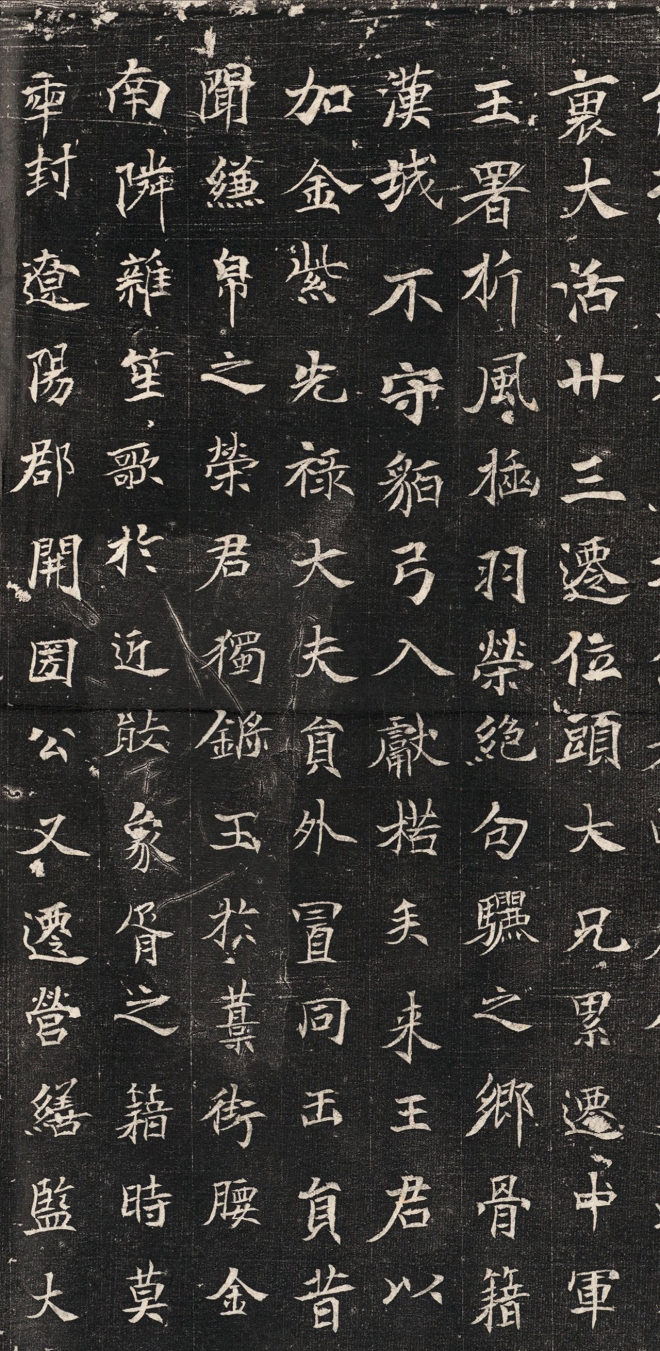 裏大活廿三遷位頭大兄累遷中軍
王署折風插羽榮絕句驪之鄉骨籍
漢城不守貊弓入獻楛矢来王君以
加金紫光祿大夫員外置同正員昔
聞縑帛之榮君獨鏘玉於藁街腰金
南隣雜笙歌於近象胥之籍時莫
𠡦封遼陽郡開圀公又遷營繕監大